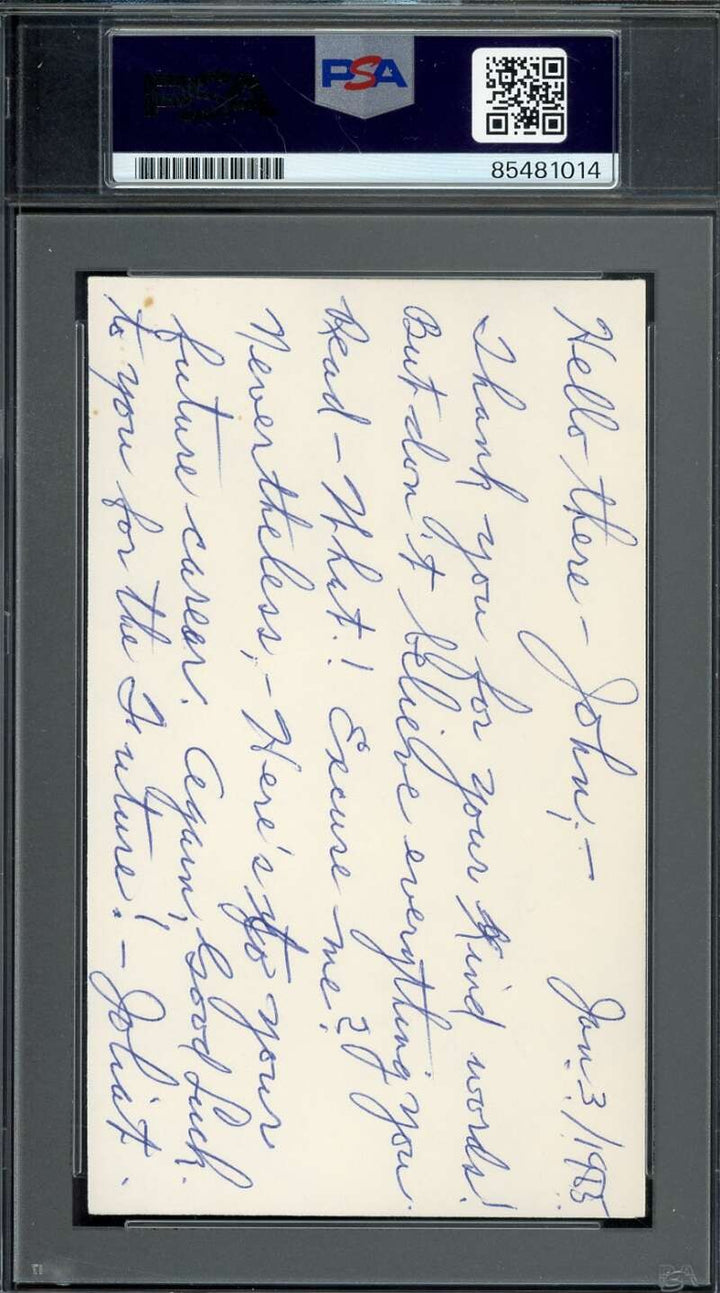 PSA
85481014
Hello there - John,- Jan. 3/1985
Thank you for your kind words!
But don't believe everything you
Read - What! Excuse me?
Nevertheless, - Here's to your
future career. Again, Good Luck
to you for the Future! - Joliat.